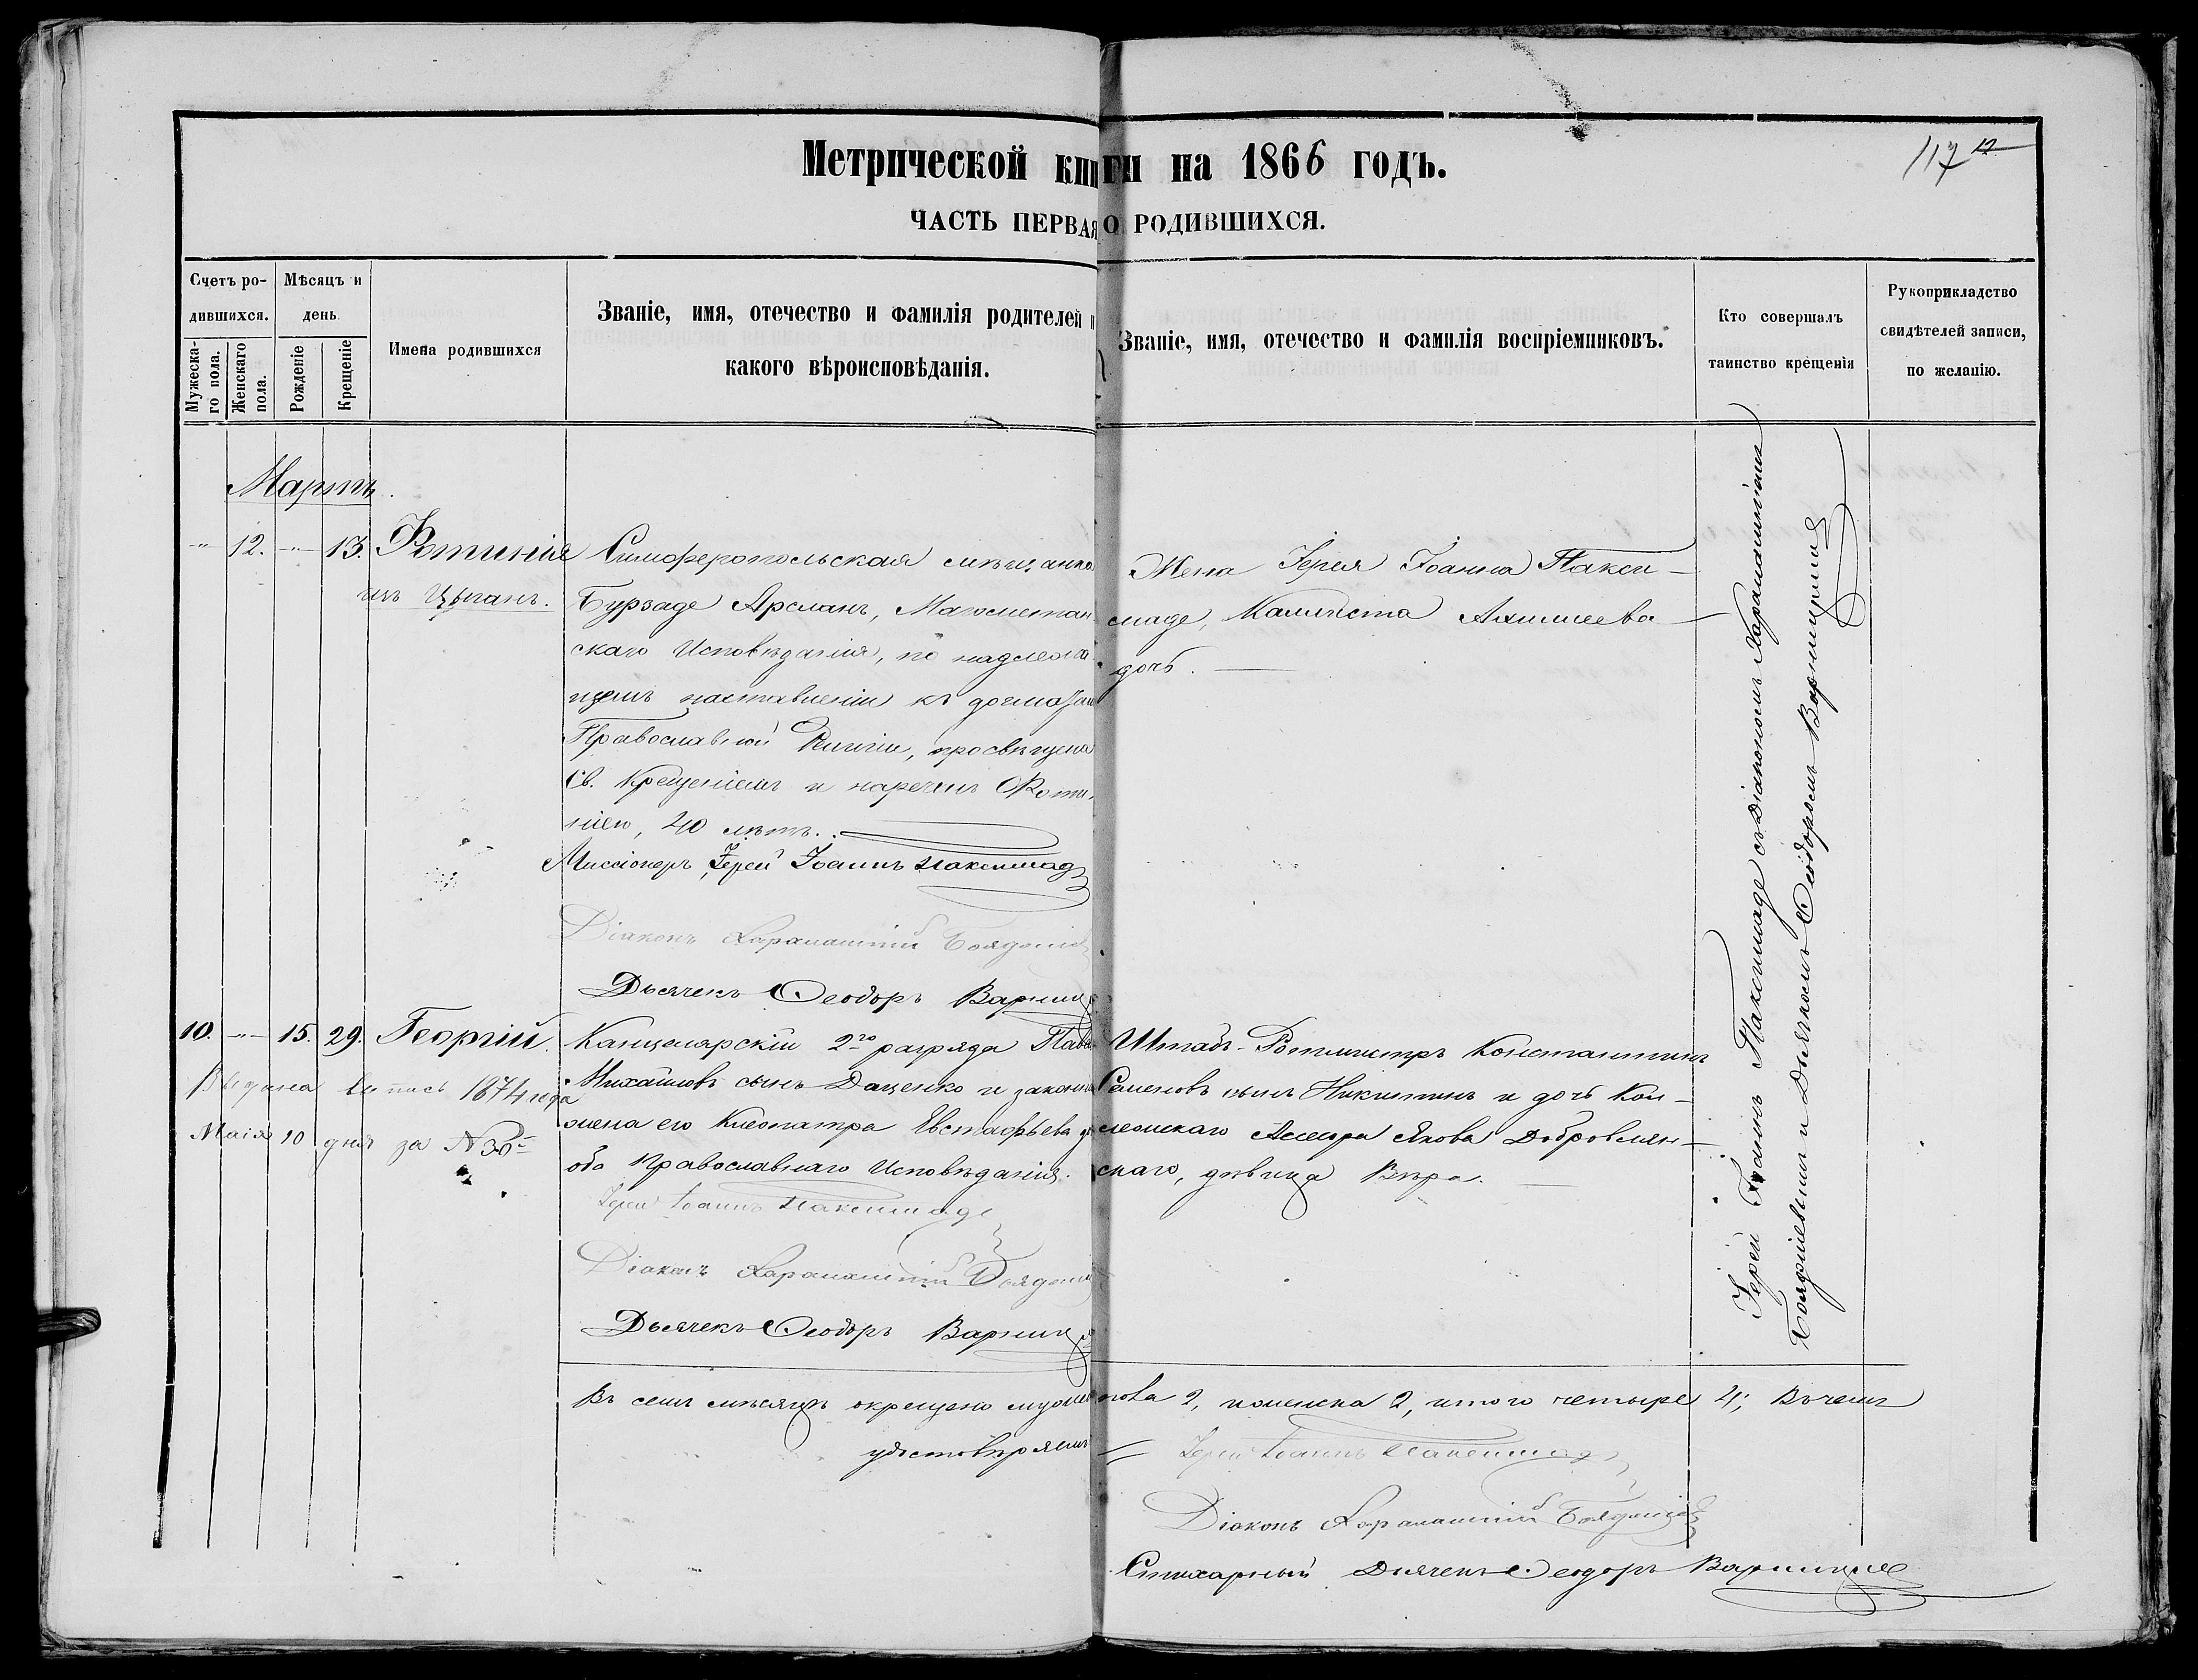 Метрической книги на 1866 годъ.
117 12
ЧАСТЬ ПЕРВАЯ О РОДИВШИХСЯ.
Счетъ ро-
дившихся.
Мужеска-
го пола.
Женскаго
пола.
Мѣсяцъ и
день
Рожденіе
Крещеніе
Имена родившихся
Званіе, имя, отечество и фамилія родителей и
какого вѣроисповѣданія.
Званіе, имя, отечество и фамилія воспріемниковъ.
Кто совершалъ
таинство крещенія
Рукоприкладство
свидѣтелей записи,
по желанію.
Мартъ.
12. 13. Фотинія
изъ Цыганъ.
Симферопольская мѣщанка
Бурзаде Арсланъ, Магометан
скаго Исповѣданія, по надлежа
щемъ наставленіи къ догматам
Православной Религіи, просвѣщена
Св. Крещеніемъ и наречена Фоти
ніею, 40 лѣтъ.
Миссіонеръ, Іерей Іоаннъ Паксимад
Діаконъ Харалампій
Дьячекъ Ѳеодоръ Варниц
Жена Іерея Іоанна Пакси-
маде, Каллиста
дочь.
10. 15. 29. Георгій.
Выдана выпись 1874 года
Маія 10 дня за №
Канцелярскій 2го разряда Павел
Михайловъ сынъ Даценко и законна
жена его Клеопатра Евстафьева
оба Православнаго Исповѣданія.
Іерей Іоаннъ Паксимаде
Діаконъ Харалампій
Дьячекъ Ѳеодоръ Варниц
Штабъ-Ротмистръ Константинъ
Семеновъ сынъ Никитинъ и дочь Кол-
лежскаго Асесора Якова Добровлян-
скаго, дѣвица Вѣра.
Іерей Іоаннъ Паксимаде съ Діакономъ Харалампіемъ
и Дьячкомъ Ѳеодоромъ
Въ семъ мѣсяцѣ окрещено мужес
кова 2, женска 2, итого четыре 4; въ чемъ
удостовѣряемъ
Іерей Іоаннъ Паксимад
Діаконъ Харалампій
Стихарный Дьячекъ Ѳеодоръ